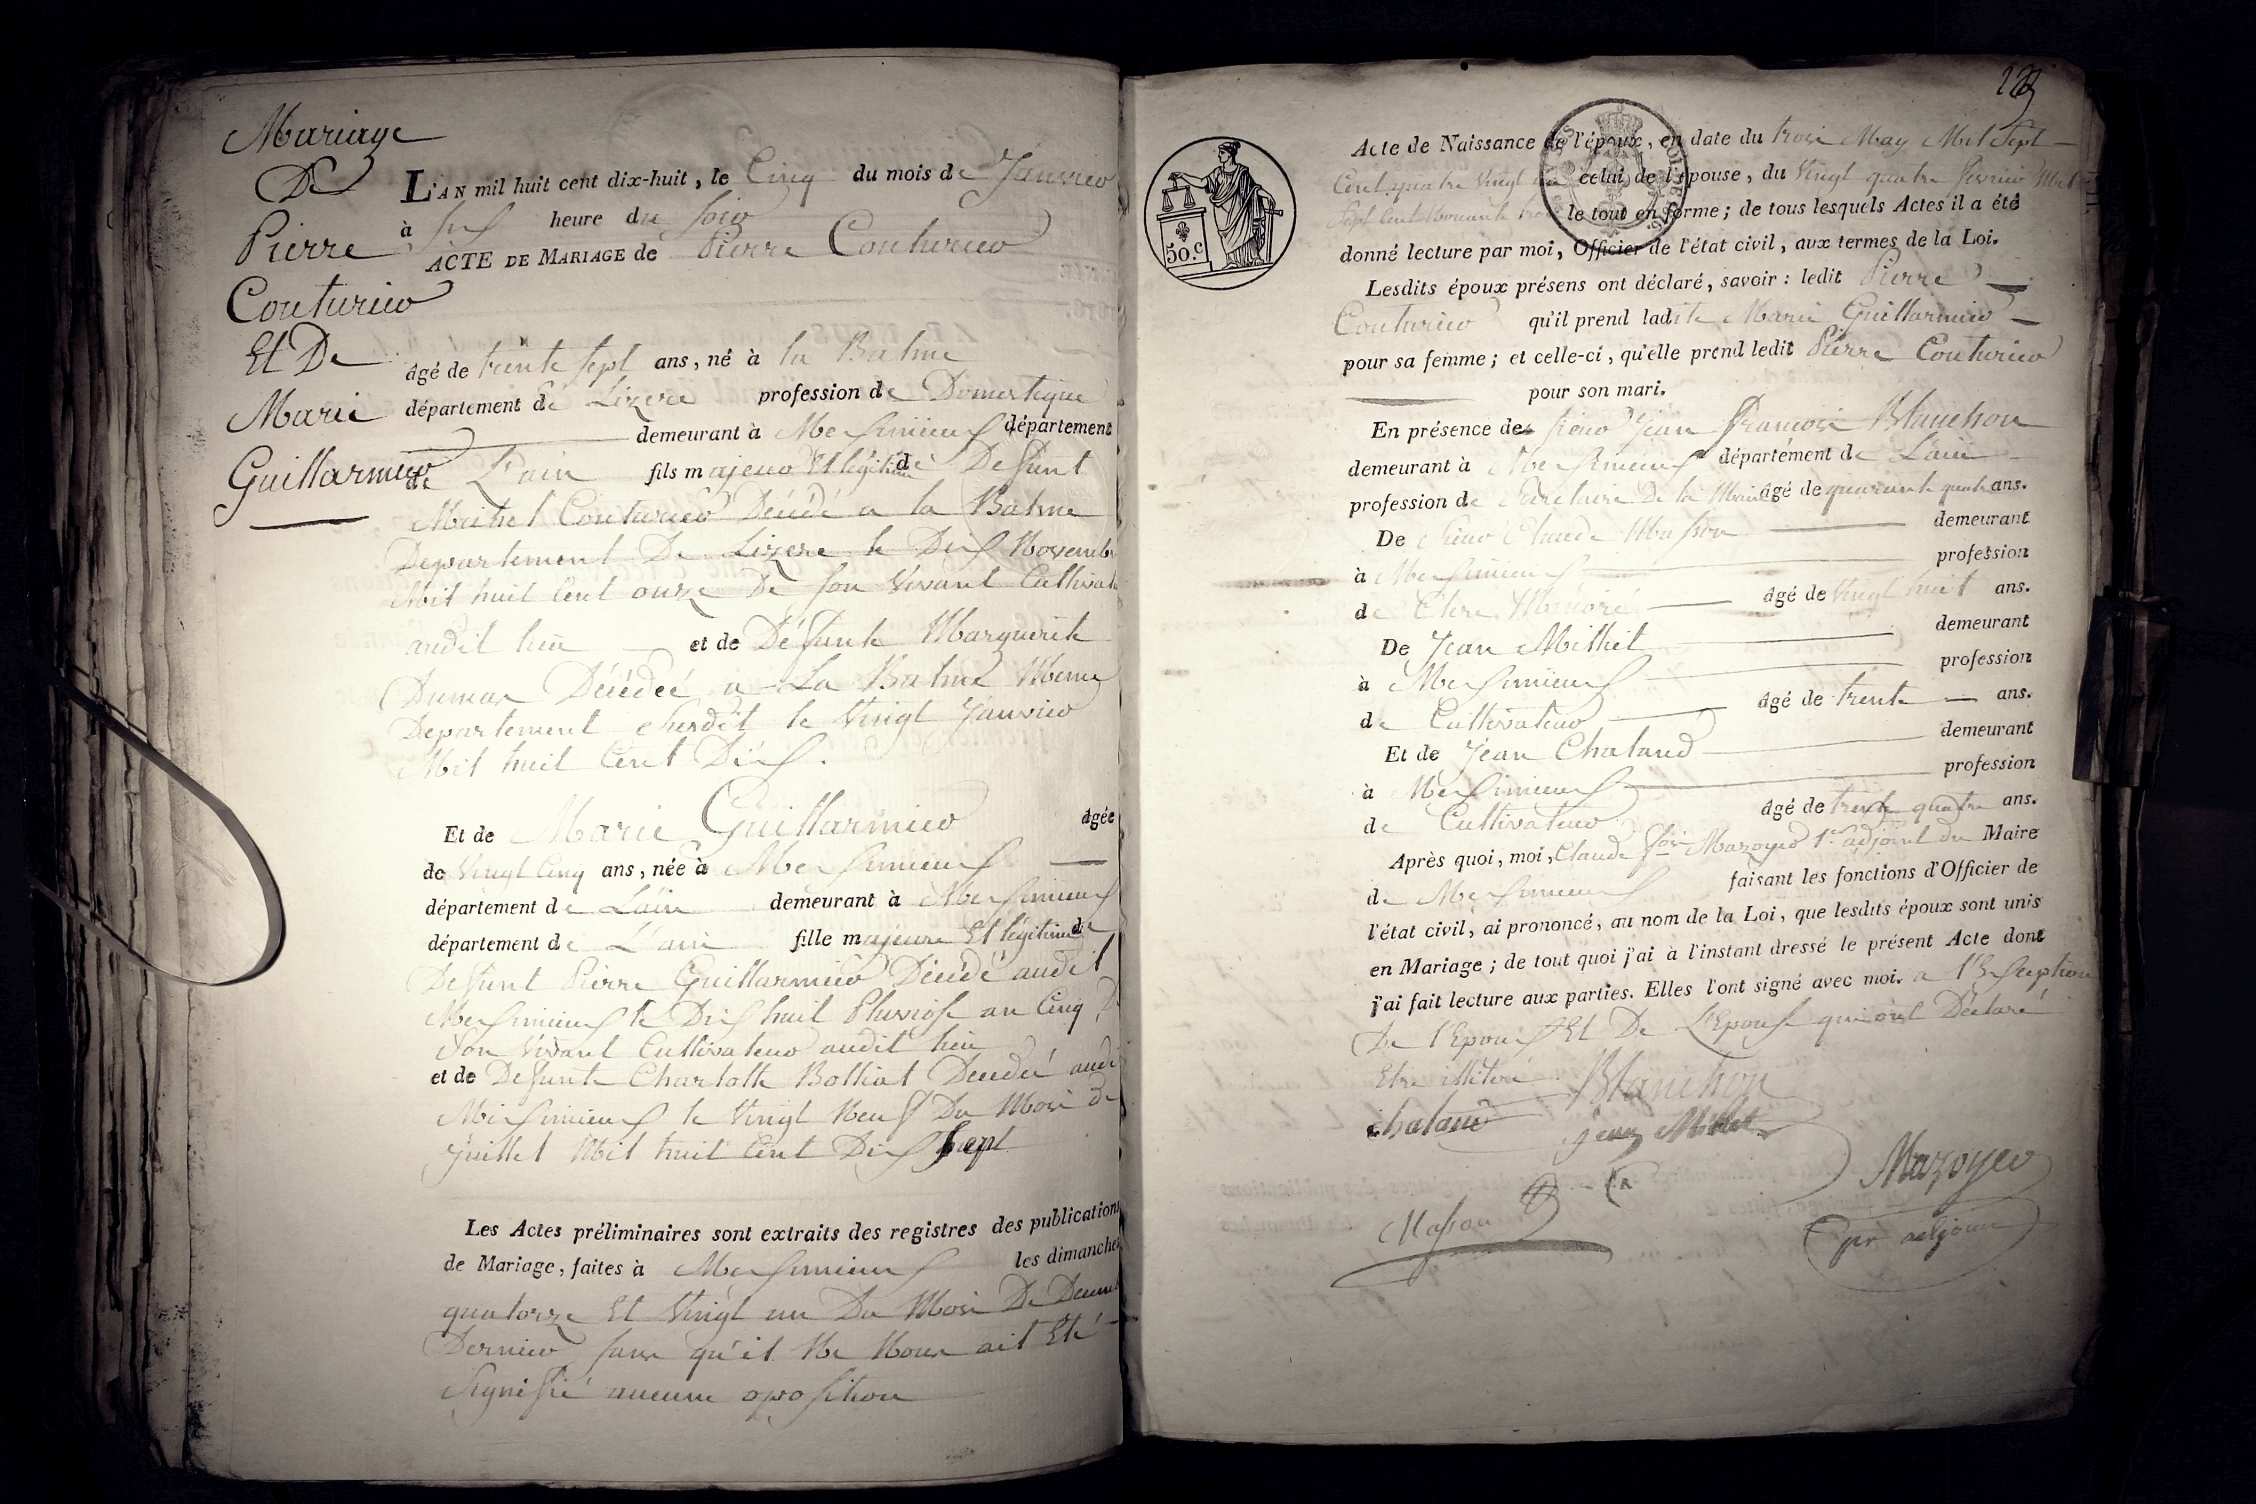 Mariage
De
Pierre
Couturier
Et De
Marie
Guillarmier
L'AN mil huit cent dix-huit, le Cinq du mois de Janvier
à six heure du soir
ACTE DE MARIAGE de Pierre Couturier
âgé de trente sept ans, né à la Balme
département de Lizere profession de Domestique
demeurant à Meximieux département
de L'ain fils majeur Et légitime de Defunt
Michel Couturier Décédé a la Balme
Departement De Lizere le Dix Novembre
Mil huit Cent onze De son Vivant Cultivat
audit lieu et de Défunte Marguerite
Dumas Décédeé a La Balme Meme
Departement Susdit le Vingt Janvier
Mil huit Cent Dix.
Et de Marie Guillarmier âgée
de Vingt Cinq ans, née à Meximieux
département de L'ain demeurant à Meximieux
département de L'ain fille majeure Et légitime de
Defunt Pierre Guillarmier Décédé audit
Meximieux le Dix huit Pluviose an Cinq D
son Vivant Cultivateur audit lieu
et de Defunte Charlotte Bolliat Decedeé audi
Meximieux le Vingt Neuf Du Mois de
Juillet Mil huit Cent Dix Sept
Les Actes préliminaires sont extraits des registres des publications
de Mariage, faites à Meximieux les dimanches
quatorze Et Vingt un Du Mois De Decemb
Dernier sans qu'il Ne Nous ait Eté
Signifié aucune oposition
223
50.c
Acte de Naissance de l'époux, en date du trois May Mil Sept
Cent quatre Vingt celui de l'épouse, du Vingt quatre fevrier Mil
Sept Cent Nonante trois le tout en forme; de tous lesquels Actes il a été
donné lecture par moi, Officier de l'état civil, aux termes de la Loi.
Lesdits époux présens ont déclaré, savoir: ledit Pierre
Couturier qu'il prend ladite Marie Guillarmier
pour sa femme; et celle-ci, qu'elle prend ledit Pierre Couturier
pour son mari.
En présence de sieur Jean François Blanchon
demeurant à Meximieux département de L'ain
profession de Secretaire De la Mairie âgé de quarante quatre ans.
De Sieur Claude Masson demeurant
à Meximieux profession
de Clerc Notoire âgé de Vingt huit ans.
De Jean Milliet demeurant
à Meximieux profession
de Cultivateur âgé de trente ans.
Et de Jean Chaland demeurant
à Meximieux profession
de Cultivateur âgé de trente quatre ans.
Après quoi, moi, Claude Mazoyer 1er adjoint du Maire
de Meximieux faisant les fonctions d'Officier de
l'état civil, ai prononcé, au nom de la Loi, que lesdits époux sont unis
en Mariage; de tout quoi j'ai à l'instant dressé le présent Acte dont
j'ai fait lecture aux parties. Elles l'ont signé avec moi. a l'Exseption
De l'Epoux Et De L'Epouse qui ont Déclaré
Etre illiteré
Blanchon
chaland
jean Milliet
Mazoyer
Masson
per adjoint